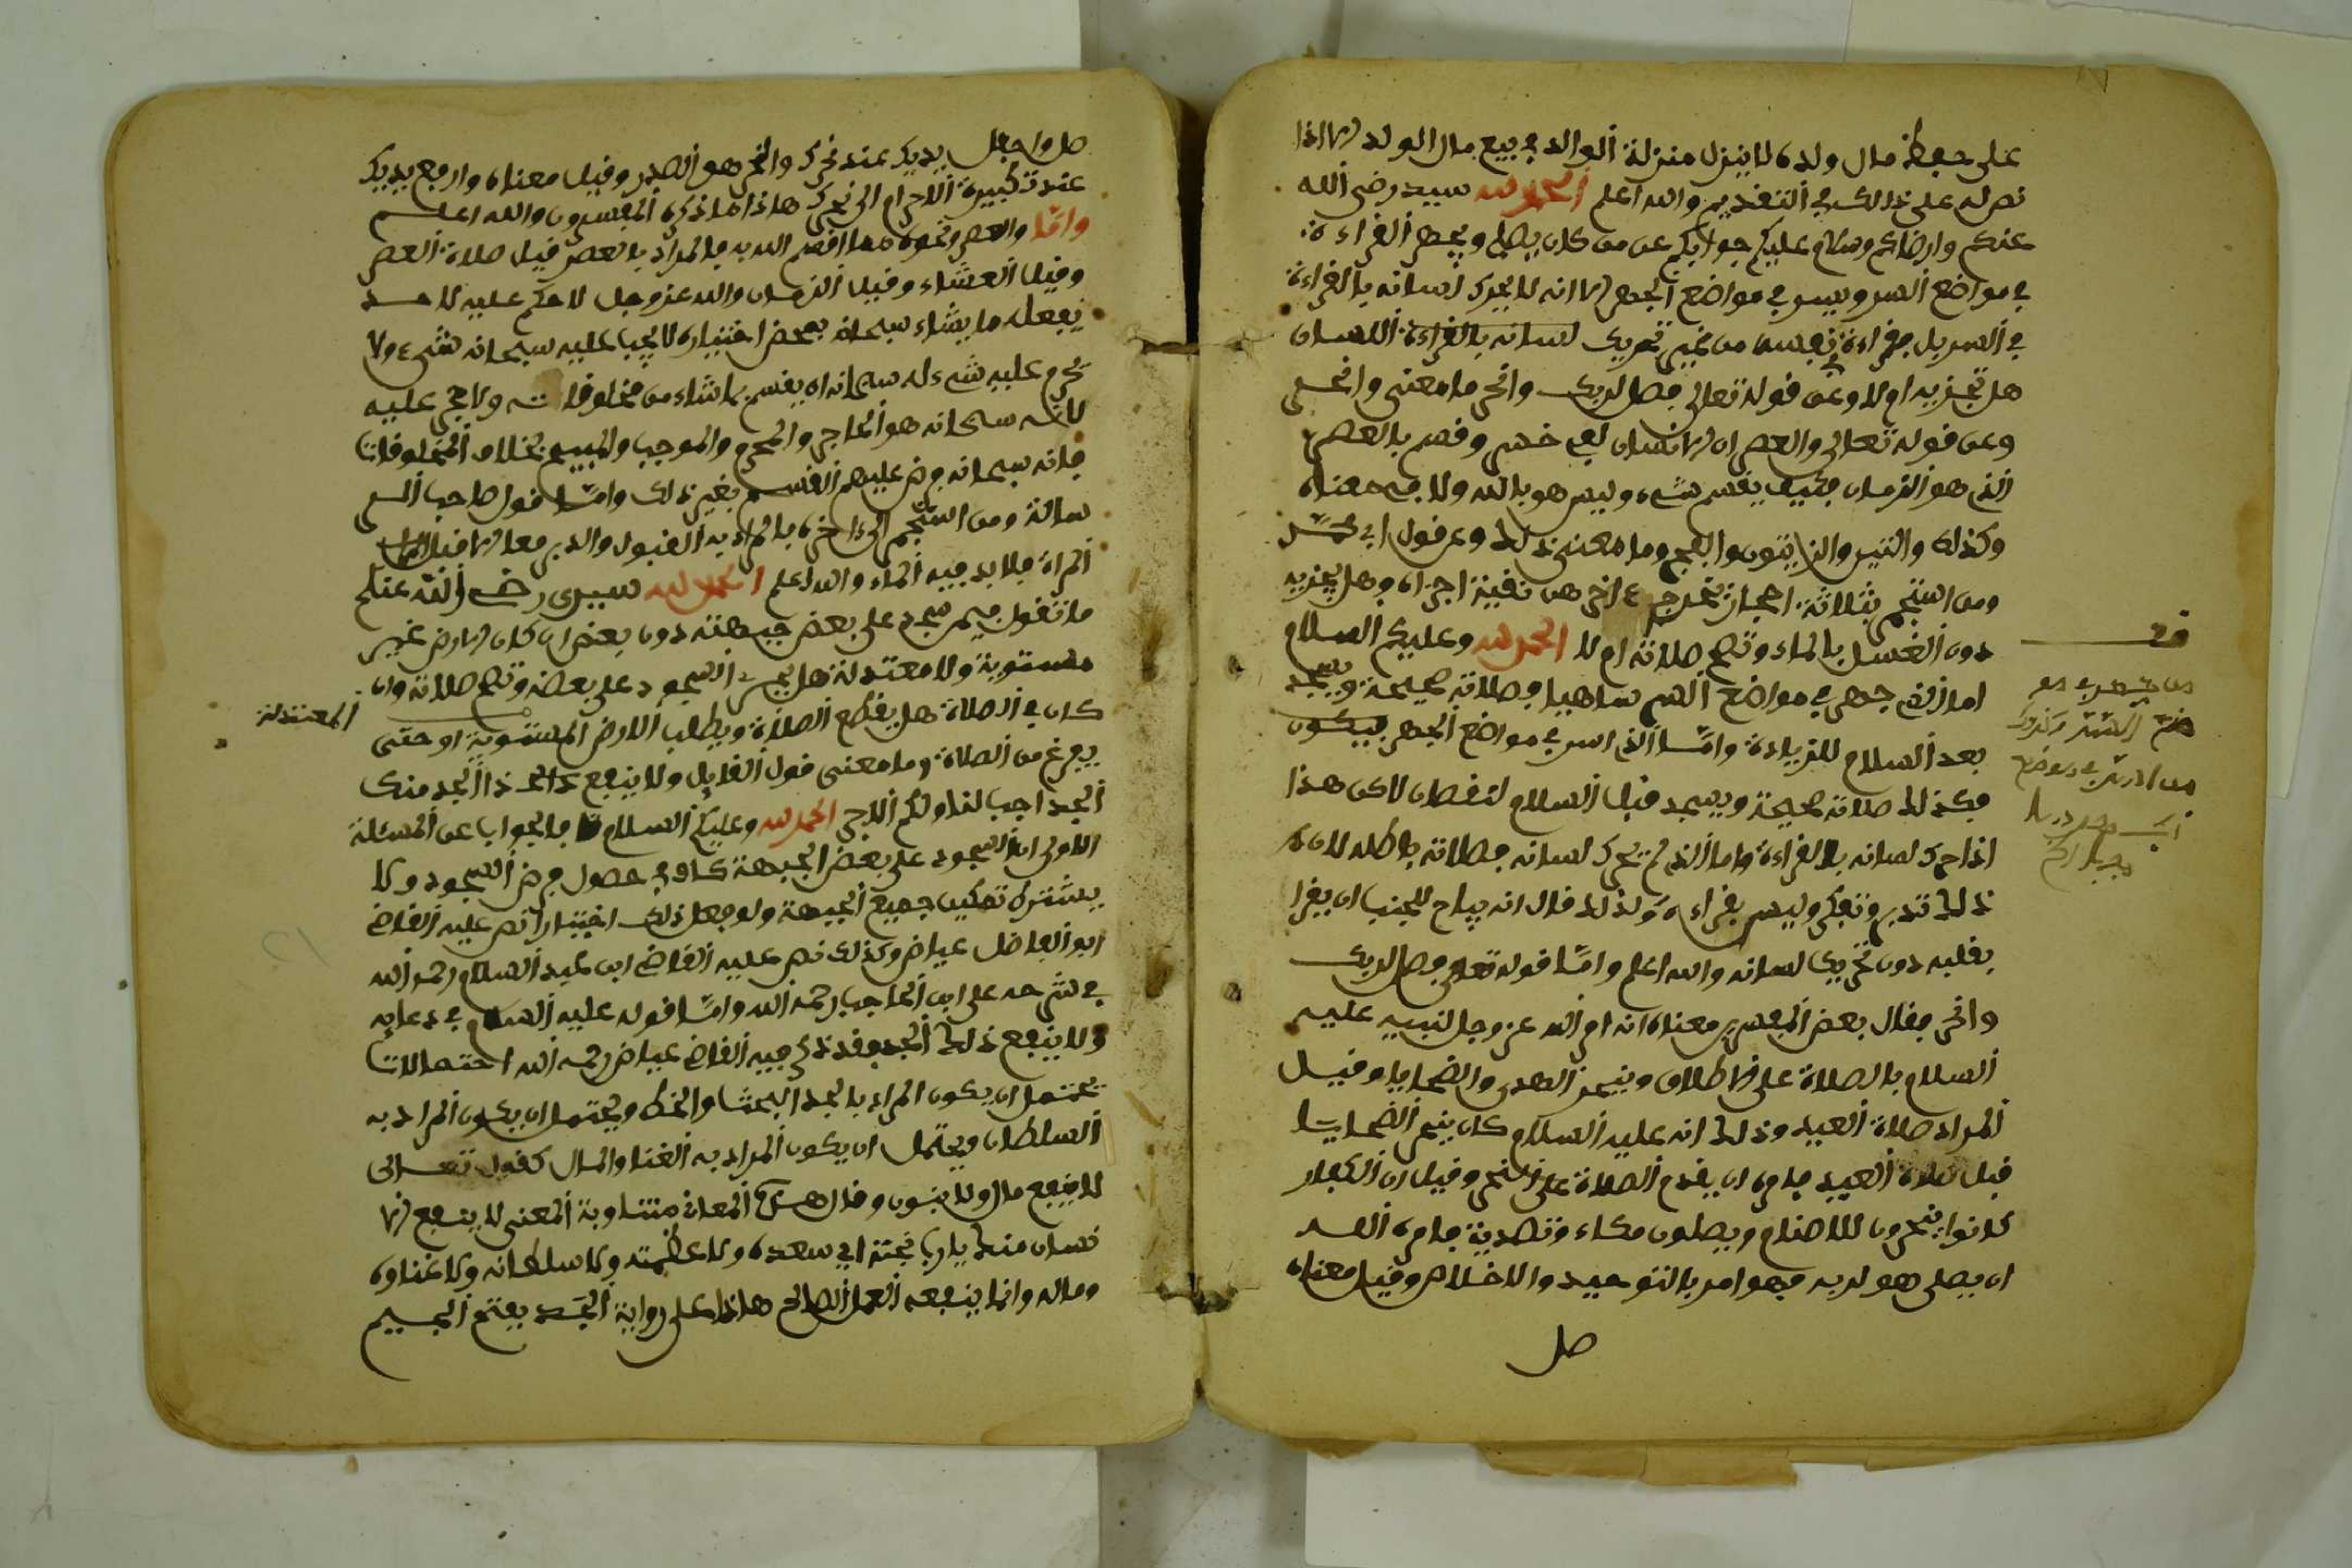 على حفظ مال ولده لا ينزل منزلة الوالد في بيع مال الولد الا اذا
نص له على ذالك في التقديم والله اعلم الحمد لله سيد رضي الله
عنكم وارضاكم وسلام عليكم جوابكم عن من كان يصلي ويجهر القراءة
في مواضع السر ويسر في مواضع الجهر الا انه لا يحرك لسانه بالقراءة
في السر بل قراءة نفسا من غير تحريك لسانه بالقراءة اللسان
هل تجزيه ام لا وعن قوله تعالى فصل لربك وانحر ما معنى وانحر
وعن قوله تعالى والعصر ان الانسان لفي خسر وقصر بالعصر
الذي هو الزمان فكيف يقسم شيء وليس هو بالله ولا في معناه
وكذلك والتين والزيتون والفجر وما معنى ذلك وعن قول ابي محمد
ومن استجمر بثلاثة احجار يخرج ءاخرهن نقية اجزاه وهل يجزيه
دون الغسل بالماء وتصح صلاته ام لا الحمد لله وعليكم السلام
اما الذي جهر في مواضع السر ساهيا فصلاته صحيحة ويسجد
بعد السلام للزيادة وامّا الذي اسر في مواضع الجهر فيكون
فكذلك صلاته صحيحة ويسجد قبل السلام لنقصان لاكن هذا
اذا حرك لسانه بالقراءة واما الذي لم يحرك لسانه فصلاته باطله لان
ذلك تدبر وتفكر وليس بقراءة ولذلك قال انه يباح للجنب ان يقرا
بقلبه دون تحريك لسانه والله اعلم وامّا قوله تعالى فصل لربك
وانحر فقال بعض المفسرين معناه انه امر الله عز وجل لنبيه عليه
السلام بالصلاة على الاطلاق وبنحر الهدي والضحايا وقيل
المراد صلاة العيد وذلك انه عليه السلام كان ينحر الضحايا
قبل صلاة العيد فامره ان يقدم الصلاة على النحر وقيل ان الكفار
كانوا ينحرون للاصنام ويصلون مكاء وتصدية فامره الله
ان يصلي هو لربه فهو امر بالتوحيد والاخلاص وقيل معناه
صل
صل واجعل يديك عند نحرك والنحر هو الصدر وقيل معناه وارفع يديك
عند تكبيرة الاحرام الى نحرك هاذا ما ذكره المفسرون والله اعلم
وامّا والعصر ونحوه مما اقسم الله به فالمراد بالعصر قيل صلاة العصر
وقيل العشاء وقيل الزمان والله عز وجل لا حكم عليه لاحد
يفعل ما يشاء سبحانه بمحض اختياره لا يجب عليه سبحانه شيء ولا
يحرم عليه شيء له سبحانه ان يقسم بما شاء من مخلوقاته ولا حجر عليه
لانّه سبحانه هو الحاجر والمحرم والموجب والمبيح بخلاف المخلوقات
فانه سبحانه حرم عليهم القسم بغير ذلك وامّا قول صاحب الر
سالة ومن استجمر الى ءاخره فالمراد به القبول والدبر معا الا قبل
المراة فلا بد فيه الماء والله اعلم الحمد لله سيدي رضي الله عنكم
ما تقول فيمن سجد على بعض جبهته دون بعض ان كان الارض غير
مستوية ولا معتدلة هل يجزيه السجود على بعضه وتصح صلاته وان
كان في الصلاة هل يقطع الصلاة ويطلب الارض المستوية او حتى
المعتدلة
يفرغ من الصلاة وما معنى قول القايل ولا ينفع ذا الجد منك
الجد اجب لنا ولكم الاجر الحمد لله وعليكم السلام فالجواب عن المسئلة
الاولى ان السجود على بعض الجبهة كاف في حصول فرض السجود ولا
يشترط تمكين جميع الجبهة ولو فعل ذلك اختيارا نص عليه القاضي
ابو الفاضل عياض وكذلك نص عليه القاضي ابن عبد السلام رحمه الله
في شرحه على ابن الحاجب رحمه الله وامّا قوله عليه السلام في دعايه
ولا ينفع ذلك الجد فقد ذكر فيه القاضي عياض رحمه الله احتمالات
يحتمل ان يكون المراد بالجد البخت والحظ ويحتمل ان يكون المراد به
السلطان ويحتمل ان يكون المراد به الغنا والمال كقوله تعالى
لا ينفع مال ولا بنون وقال هذه المعاني متقاربة المعنى لا ينفع الا
نسان منك يا رب بخته اي سعده ولا عظمته ولا سلطانه ولا غناوه
وماله وانما ينفعه العمل الصالح هاذا على رواية الجد بفتح الجيم